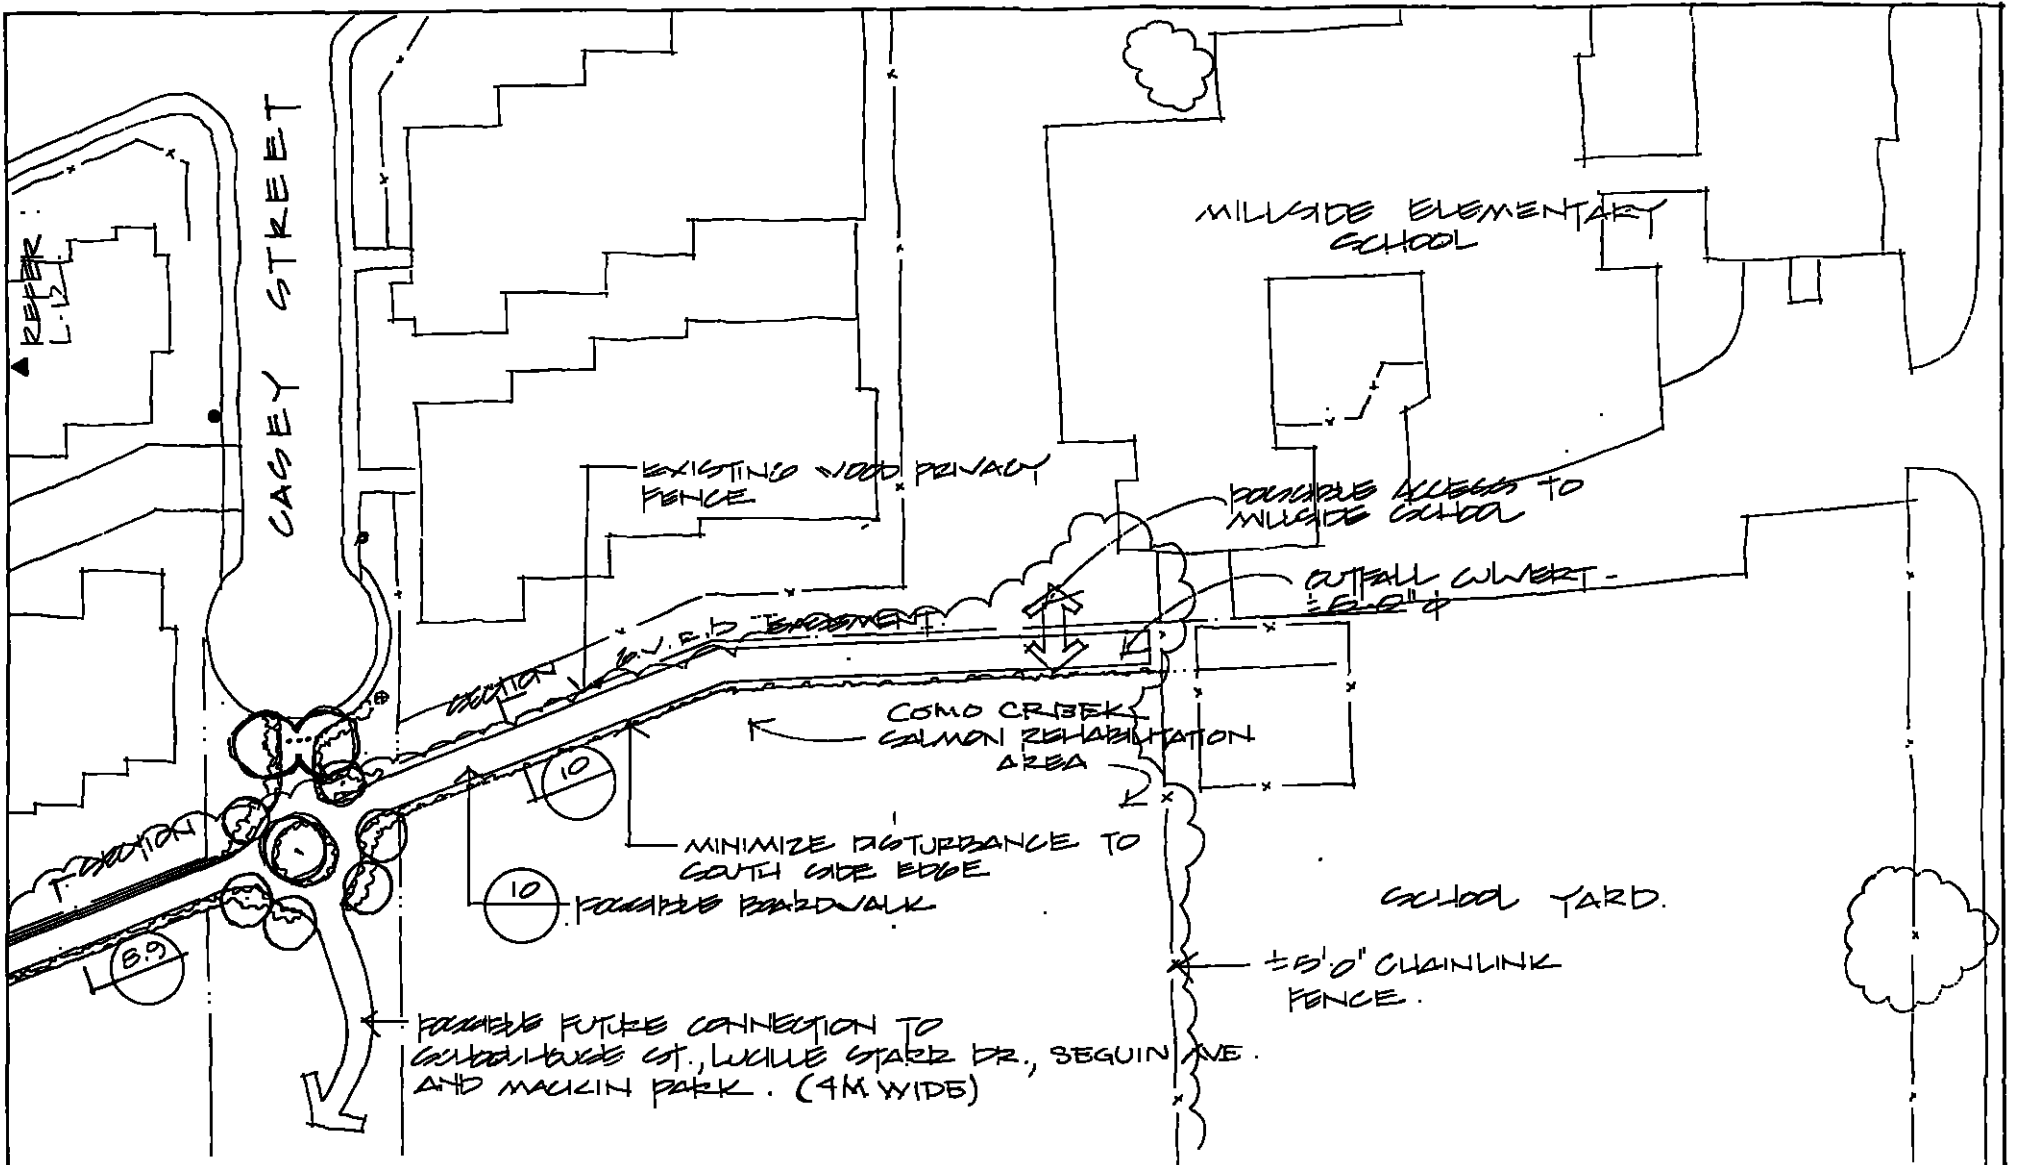 CASEY STREET
REFER
L.12
MILLSIDE ELEMENTARY
SCHOOL
EXISTING WOOD PRIVACY
FENCE
POSSIBLE ACCESS TO
MILLSIDE SCHOOL
OUTFALL CULVERT
EASEMENT
SECTION
COMO CREEK
SALMON REHABILITATION
AREA
10
MINIMIZE DISTURBANCE TO
SOUTH SIDE EDGE
10
POSSIBLE BOARDWALK
SECTION
8.9
SCHOOL YARD.
±5'0" CHAINLINK
FENCE.
POSSIBLE FUTURE CONNECTION TO
SCHOOLHOUSE ST., LUCILLE STARR DR., SEGUIN AVE.
AND MACKIN PARK. (4M WIDE)